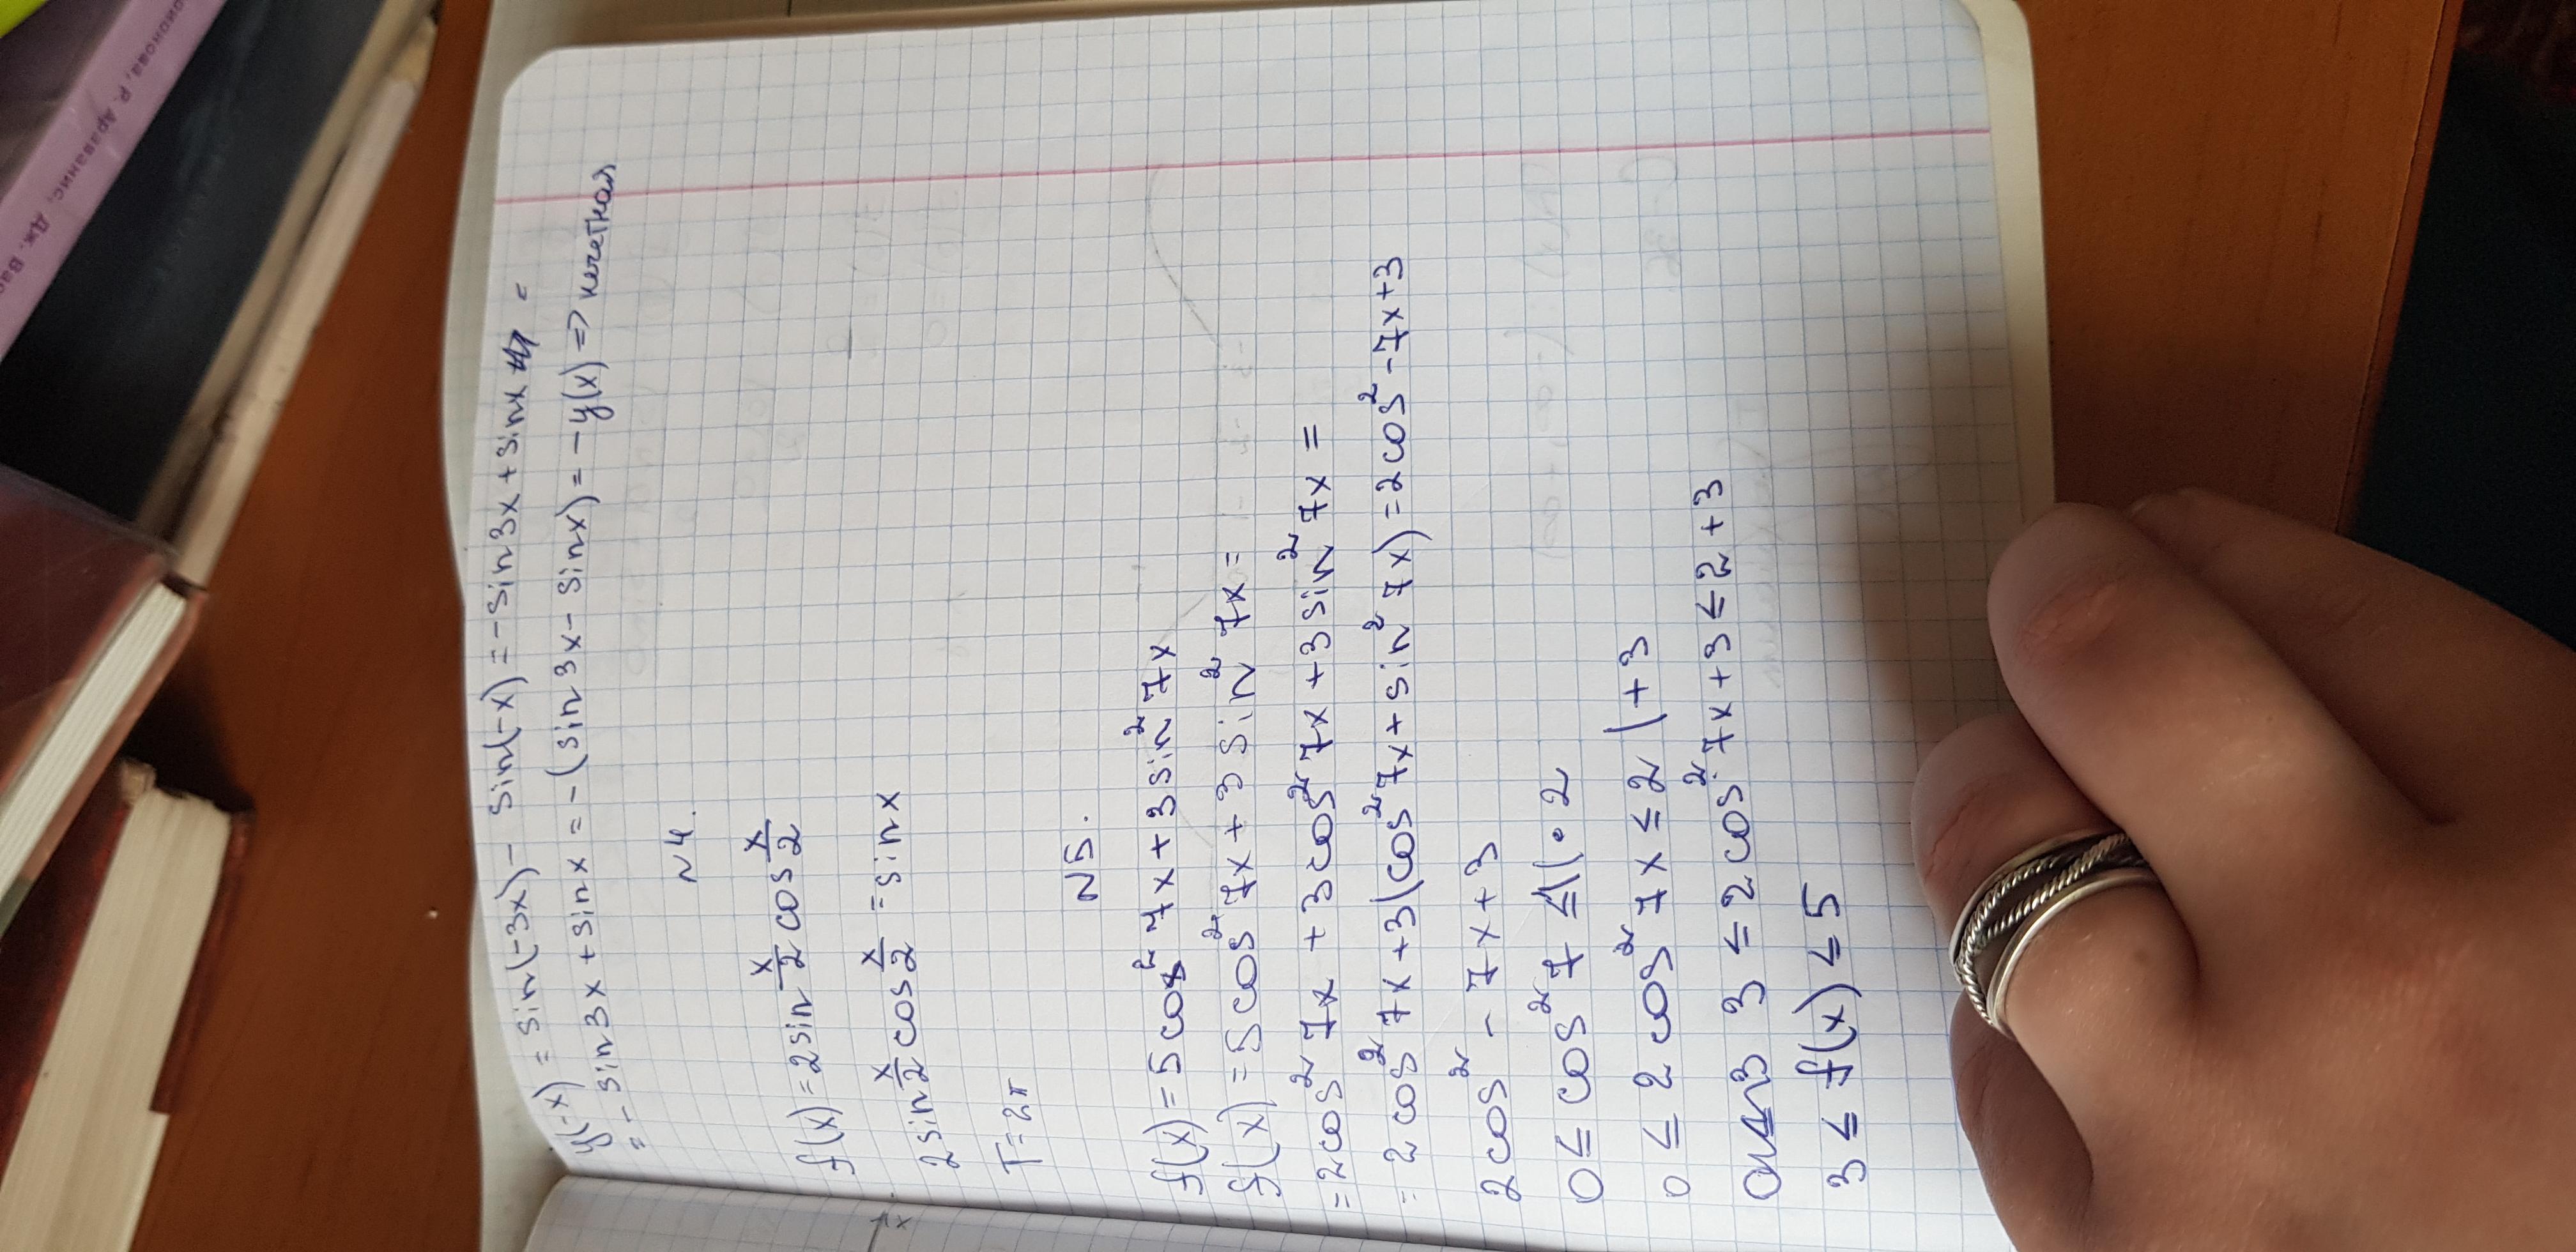 y(-x) = sin(-3x) - sin(-x) = -sin3x + sinx =
= -sin3x + sinx = -(sin3x - sinx) = -y(x) => нечетная
N4.
f(x) = 2sin x/2 cos x/2
2sin x/2 cos x/2 = sinx
T = 2π
N5.
f(x) = 5cos² 7x + 3sin² 7x
f(x) = 5cos² 7x + 3sin² 7x =
= 2cos² 7x + 3cos² 7x + 3sin² 7x =
= 2cos² 7x + 3(cos² 7x + sin² 7x) = 2cos² - 7x + 3
2cos² - 7x + 3
0 ≤ cos² 7 ≤ 1 | · 2
0 ≤ 2cos² 7x ≤ 2 | + 3
3 ≤ 2cos² 7x + 3 ≤ 2 + 3
3 ≤ f(x) ≤ 5
Араванис, Дж. Вас